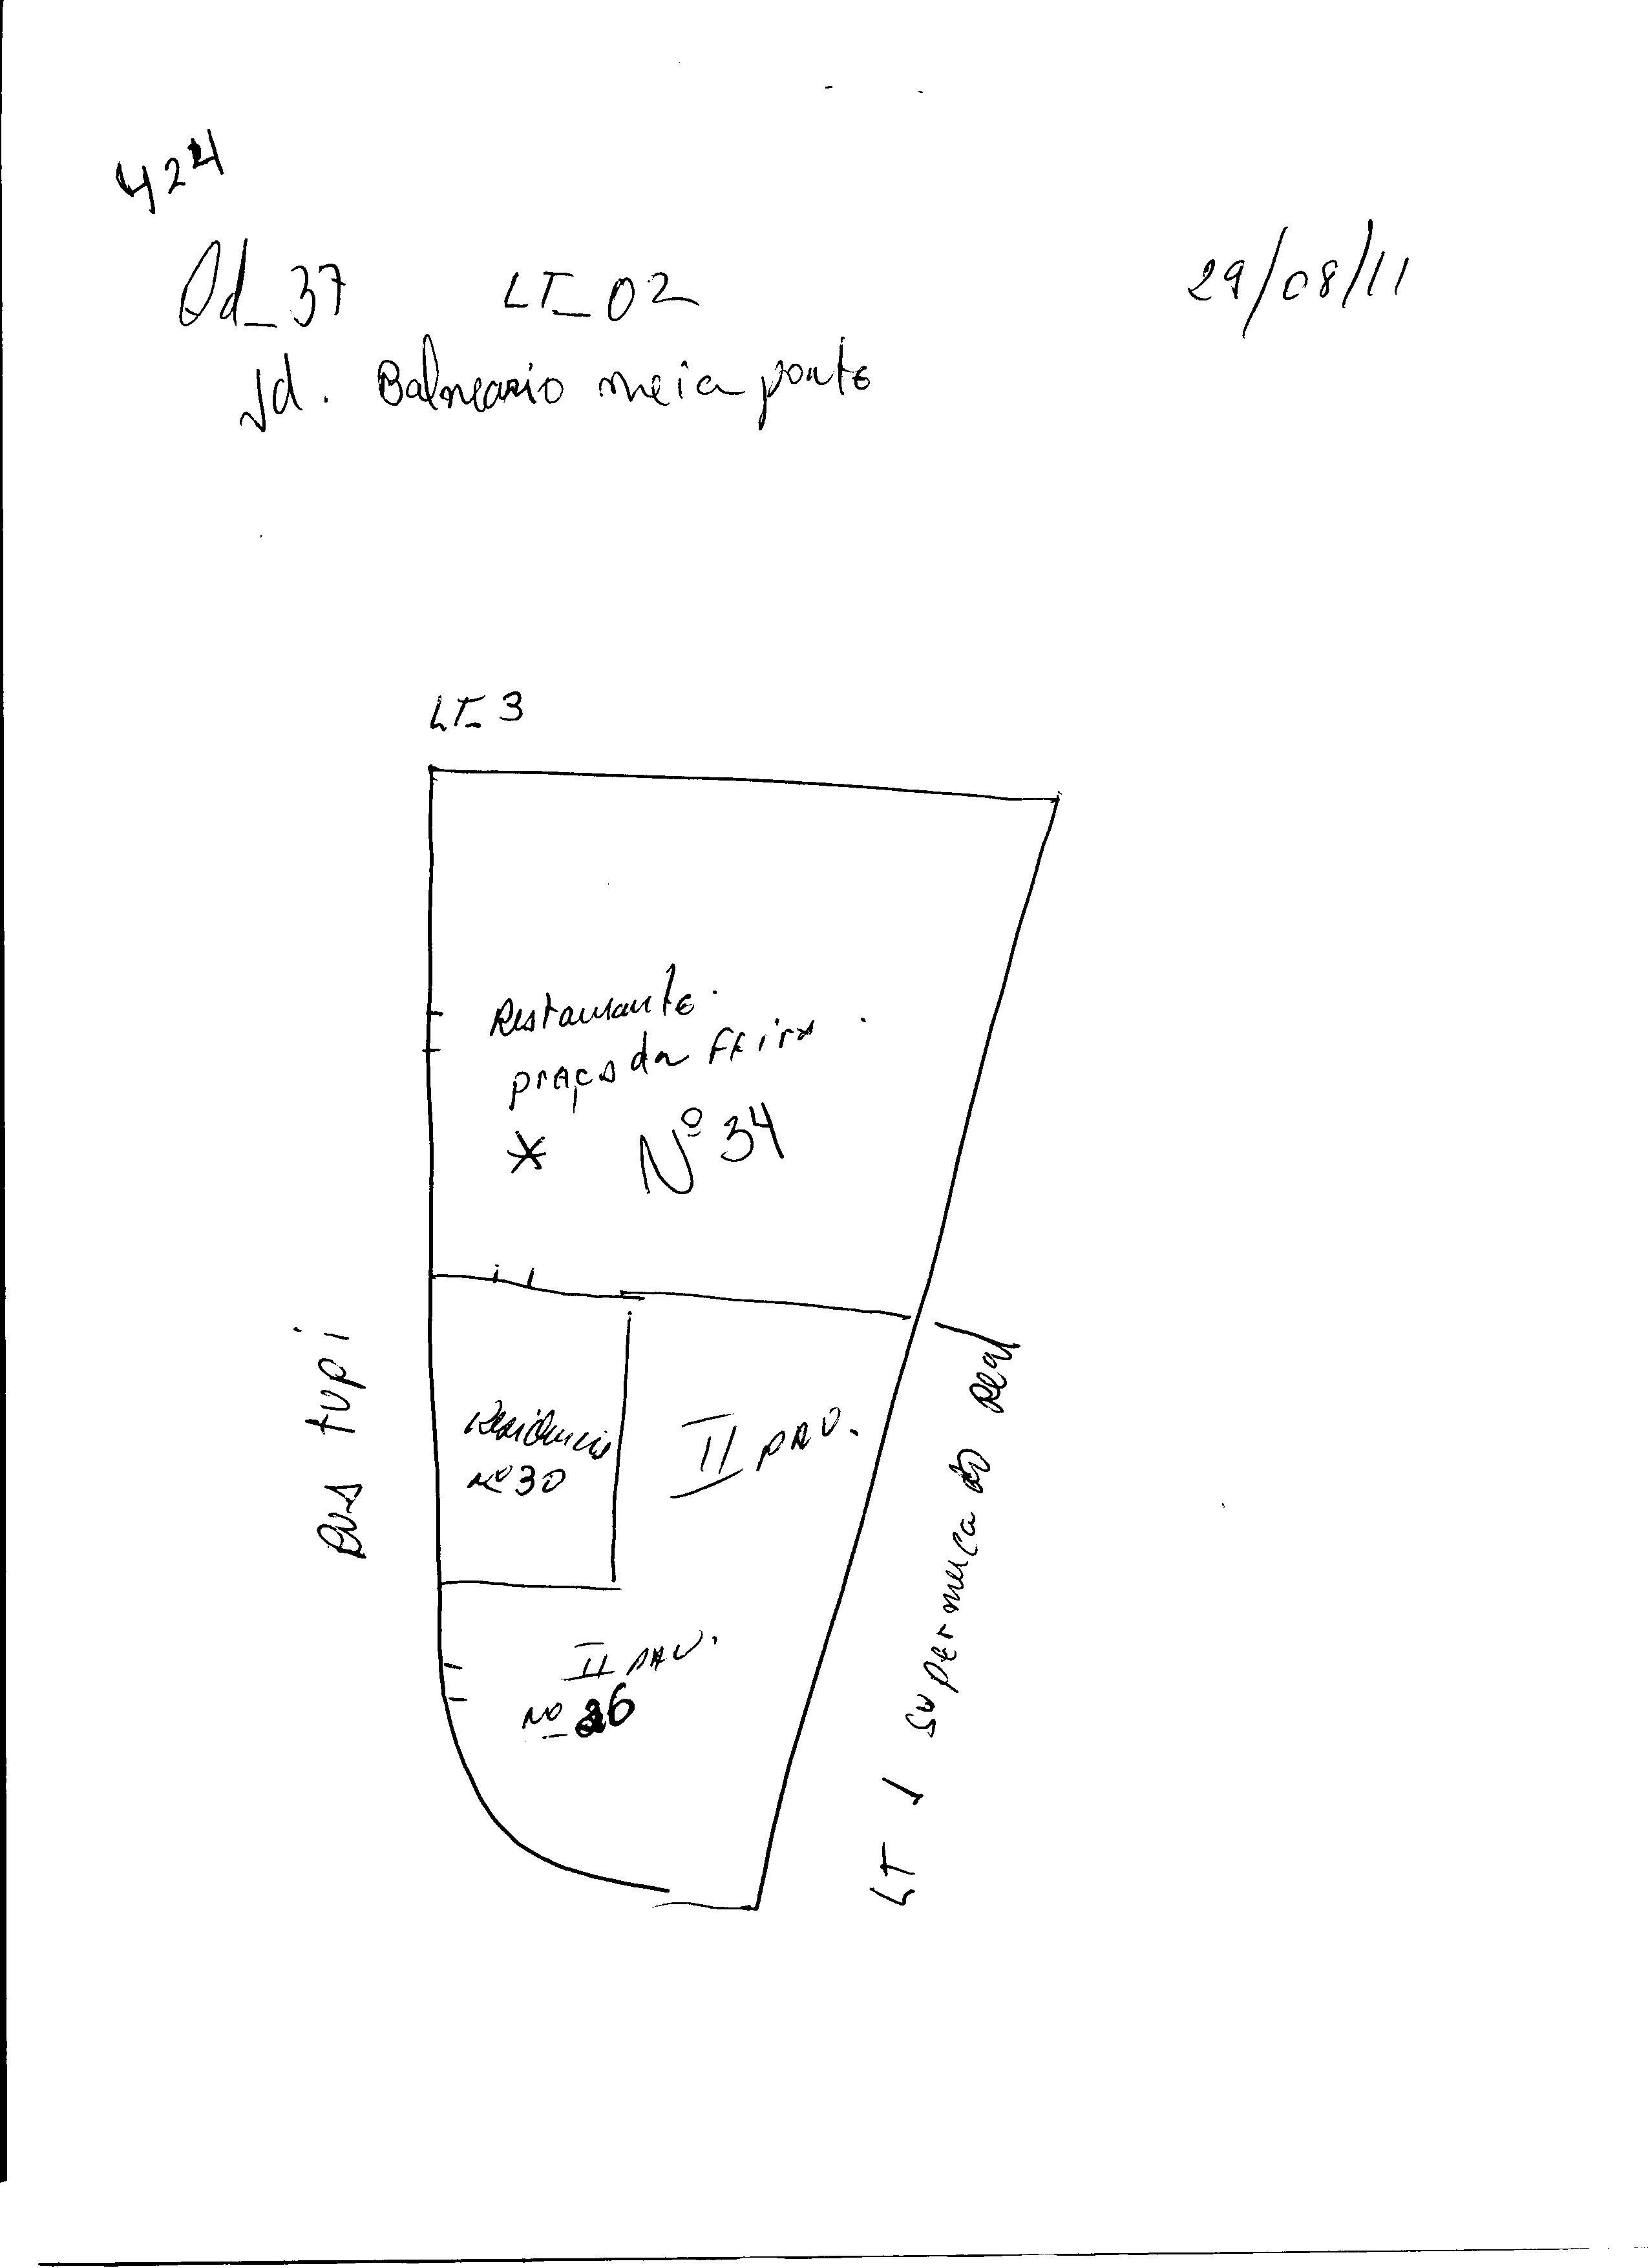 424
Qd_37 LT_02 29/08/11
Jd. Balneario meia ponte
LT_3
Restaurante
praça da FEira
* Nº 34
Rua tupi
Residencia
nº 30
II PAV.
II PAV.
nº 26
LT 1 supermercado Real